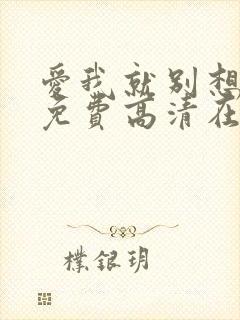 愛我就別想
免費高清在
樸銀玥